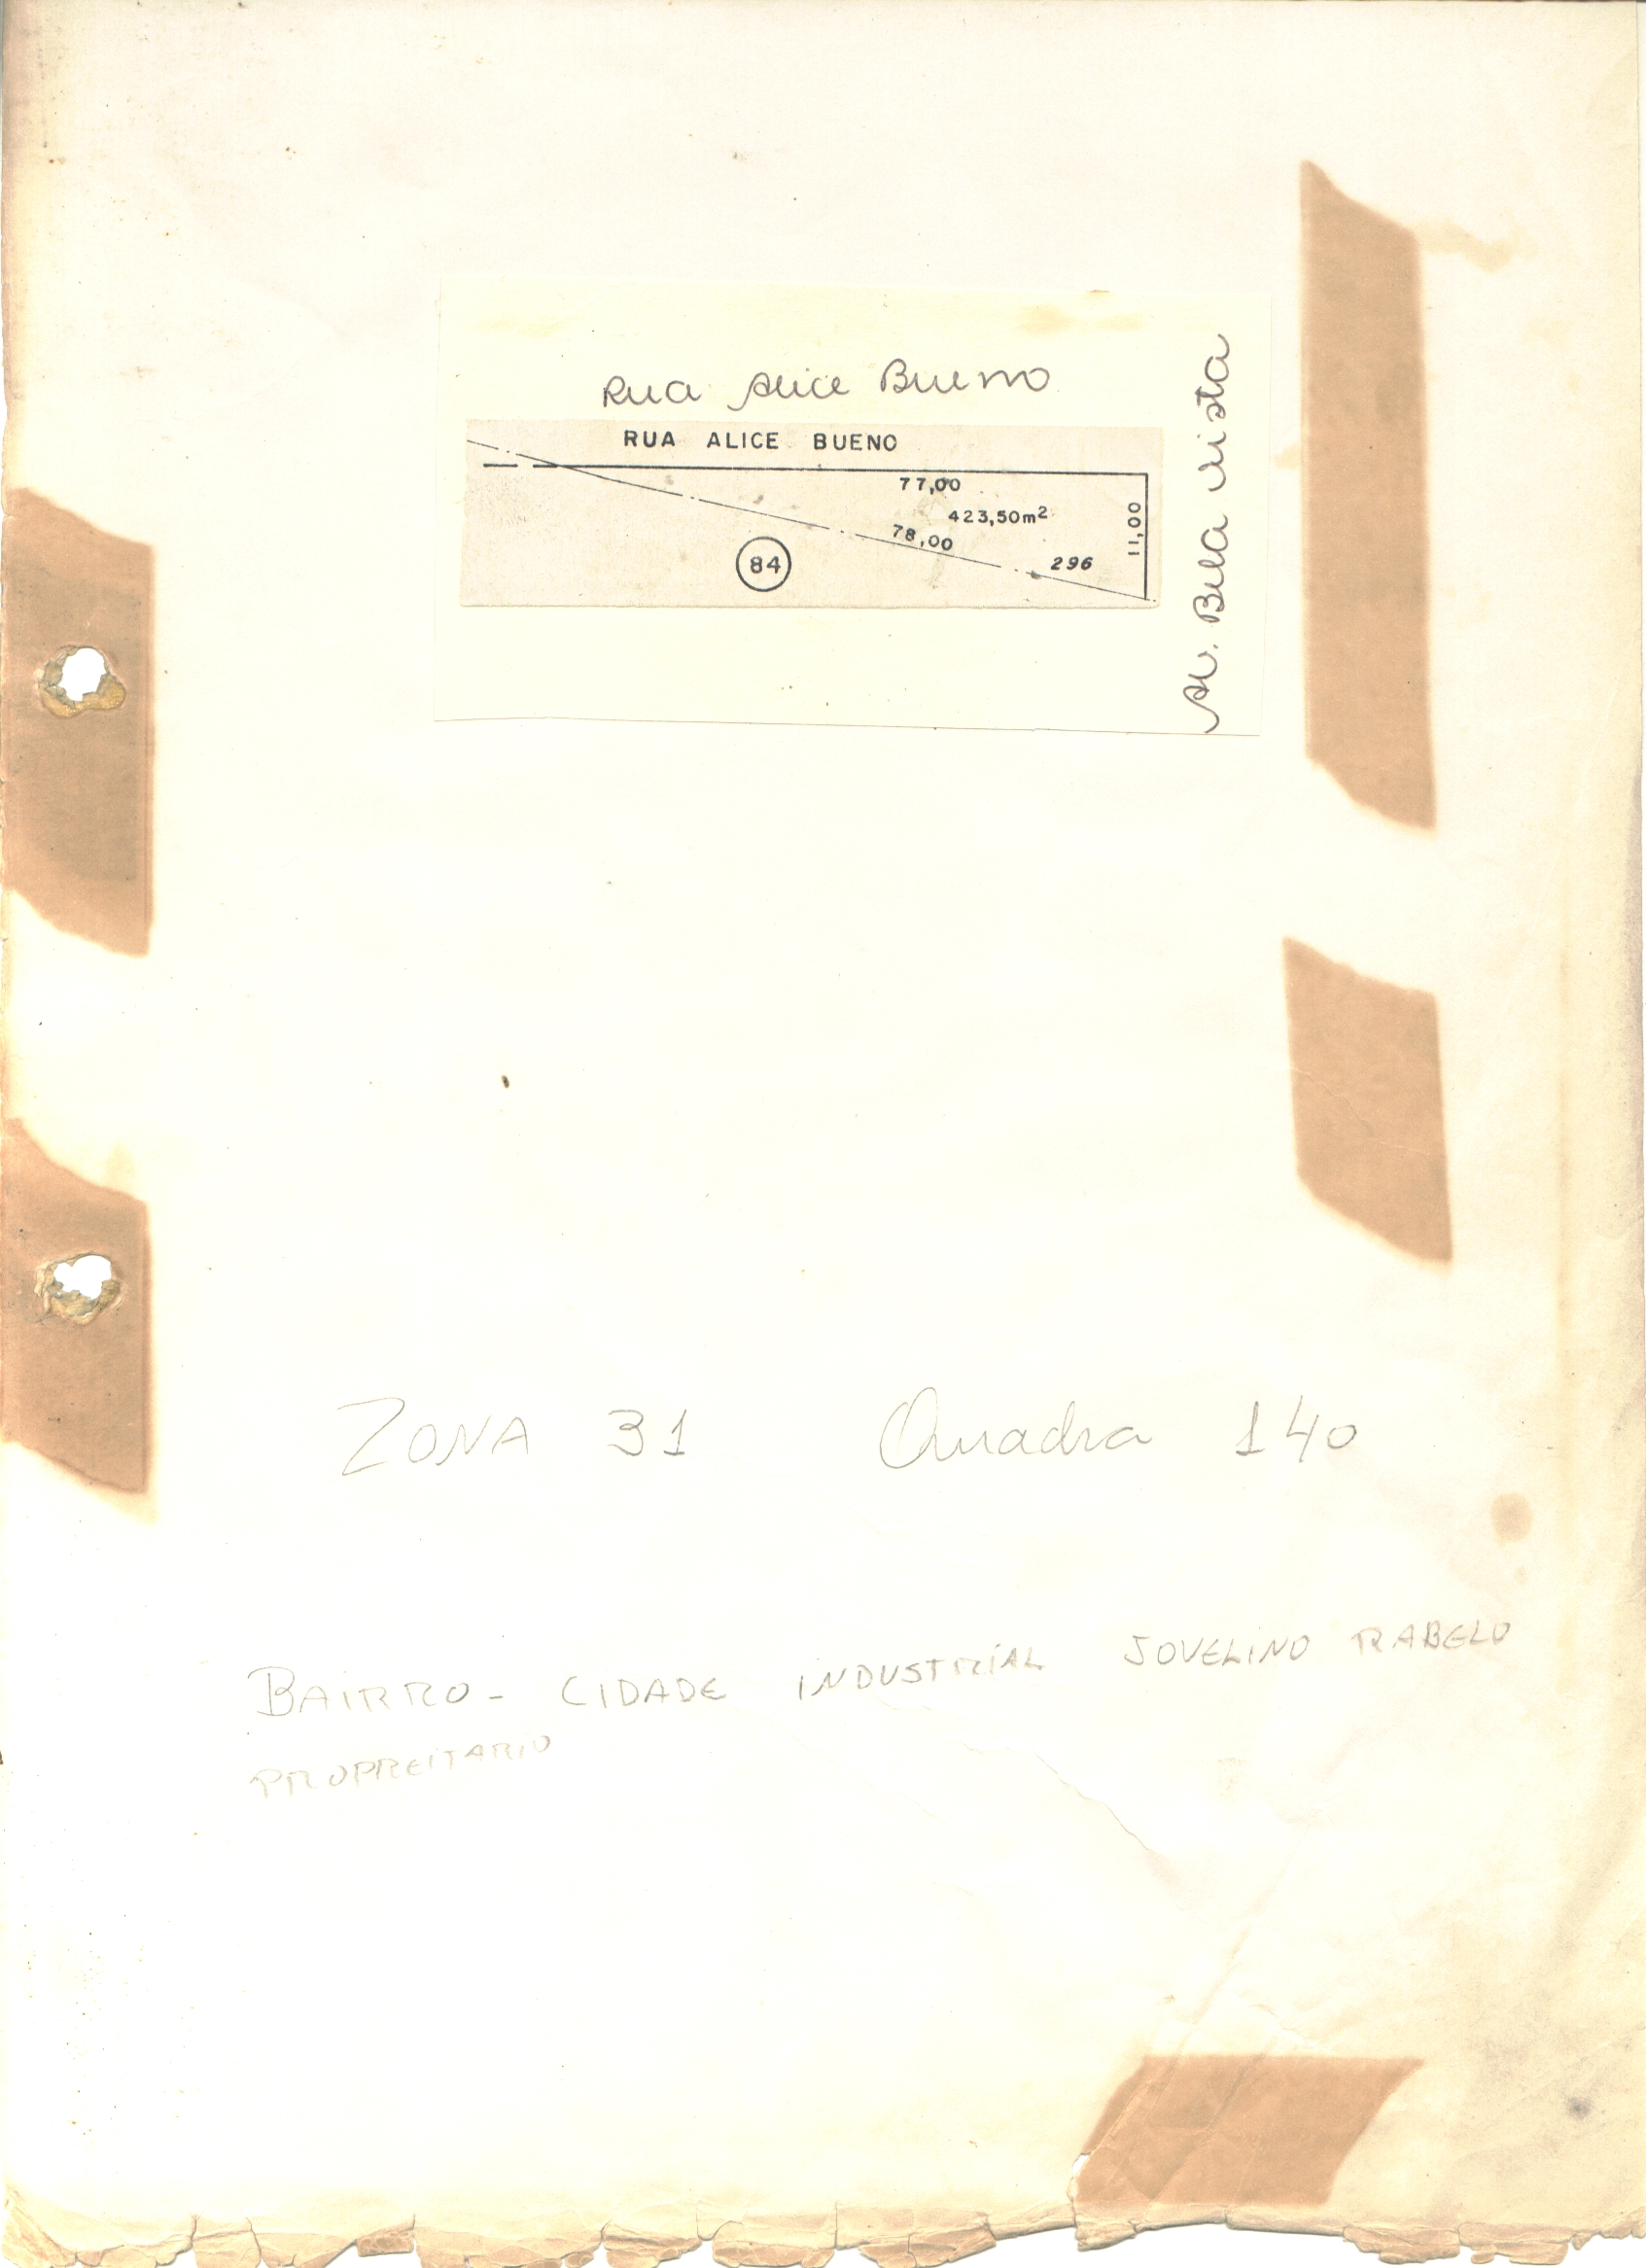 Rua Alice Bueno
Av. Bela Vista
RUA ALICE BUENO
77,00
423,50m²
11,00
78,00
296
84
ZONA 31 Quadra 140
BAIRRO - CIDADE INDUSTRIAL JOVELINO RABELO
PROPREITARIO